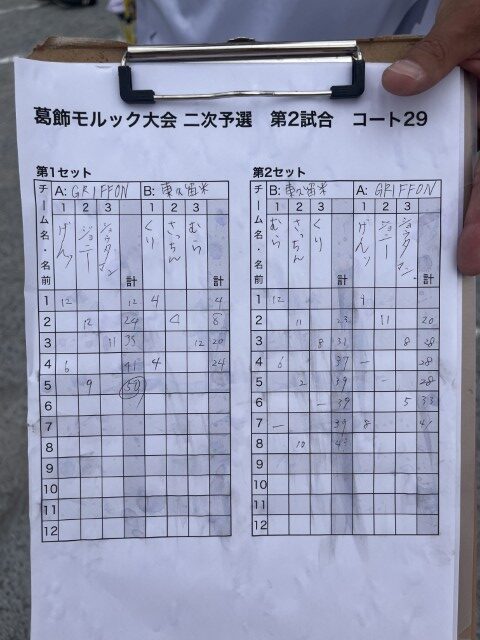 葛飾モルック大会 二次予選 第2試合 コート29
第1セット
チーム名・名前 A: GRIFFON B: 東久留米
1 2 3 1 2 3
げんッ ジョニー 計 くり さっちん むら 計
1 12 12 4 4
2 12 24 4 8
3 11 35 12 20
4 6 41 4 24
5 9 50
6
7
8
9
10
11
12
第2セット
チーム名・名前 B: 東久留米 A: GRIFFON
1 2 3 1 2 3
むら さっちん くり 計 げんッ ジョニー 計
1 12
2 11 23 11 20
3 8 31 8 28
4 6 37 - 28
5 2 39 - 28
6 - 39 5 33
7 - 39 8 41
8 10 43
9
10
11
12